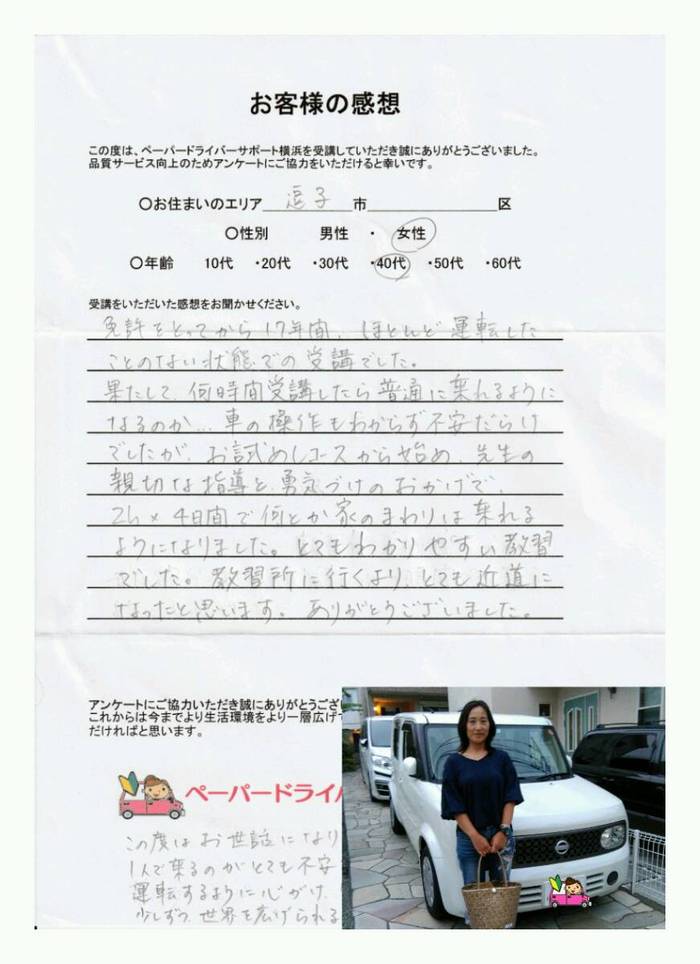 お客様の感想
この度は、ペーパードライバーサポート横浜を受講していただき誠にありがとうございました。
品質サービス向上のためアンケートにご協力をいただけると幸いです。
〇お住まいのエリア 逗子 市 区
〇性別 男性 ・ 女性
〇年齢 10代 ・20代 ・30代 ・40代 ・50代 ・60代
受講をいただいた感想をお聞かせください。
免許をとってから17年間、ほとんど運転した
ことのない状態での受講でした。
果たして、何時間受講したら普通に乗れるように
なるのか... 車の操作もわからず不安だらけ
でしたが、お試めしコースから始め、先生の
親切な指導と、勇気づけのおかげで、
2h×4日間で何とか家のまわりは乗れる
ようになりました。とてもわかりやすい教習
でした。教習所に行くより、とても近道に
なったと思います。ありがとうございました。
アンケートにご協力いただき誠にありがとうござ
これからは今までより生活環境をより一層広げ
だければと思います。
ペーパードライ
この度はお世話になり
1人で乗るのがとても不安
運転するように心がけ、
少しずつ、世界を広げられる